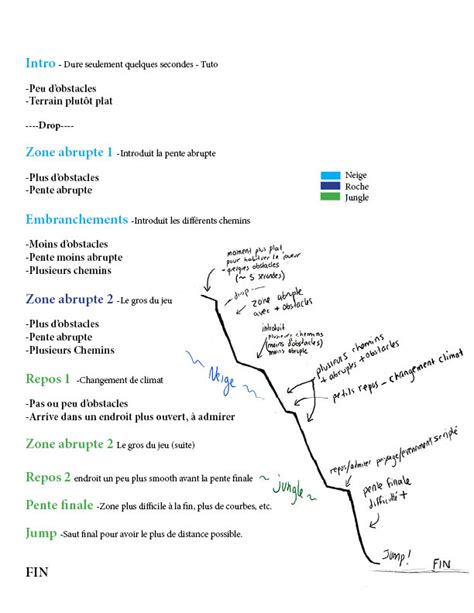 Intro - Dure seulement quelques secondes - Tuto
-Peu d'obstacles
-Terrain plutôt plat
----Drop----
Zone abrupte 1 -Introduit la pente abrupte
-Plus d'obstacles
-Pente abrupte
Neige
Roche
Jungle
Embranchements -Introduit les différents chemins
-Moins d'obstacles
-Pente moins abrupte
-Plusieurs chemins
moment plus plat
pour habituer le joueur
- quelques obstacles
(~ 5 secondes)
Zone abrupte 2 -Le gros du jeu
-Plus d'obstacles
-Pente abrupte
-Plusieurs Chemins
drop
zone abrupte
avec + obstacles
introduit
plusieurs chemins
(moins d'obstacles)
moins abrupte
plusieurs chemins
+ abruptes + obstacles
~ Neige ~
petits repos - changement climat
Repos 1 -Changement de climat
-Pas ou peu d'obstacles
-Arrive dans un endroit plus ouvert, à admirer
Zone abrupte 2 Le gros du jeu (suite)
repos/admirer paysage/évènement scripté
Repos 2 endroit un peu plus smooth avant la pente finale
~ jungle ~
pente finale
difficulté +
Pente finale -Zone plus difficile à la fin, plus de courbes, etc.
Jump -Saut final pour avoir le plus de distance possible.
Jump! FIN
FIN